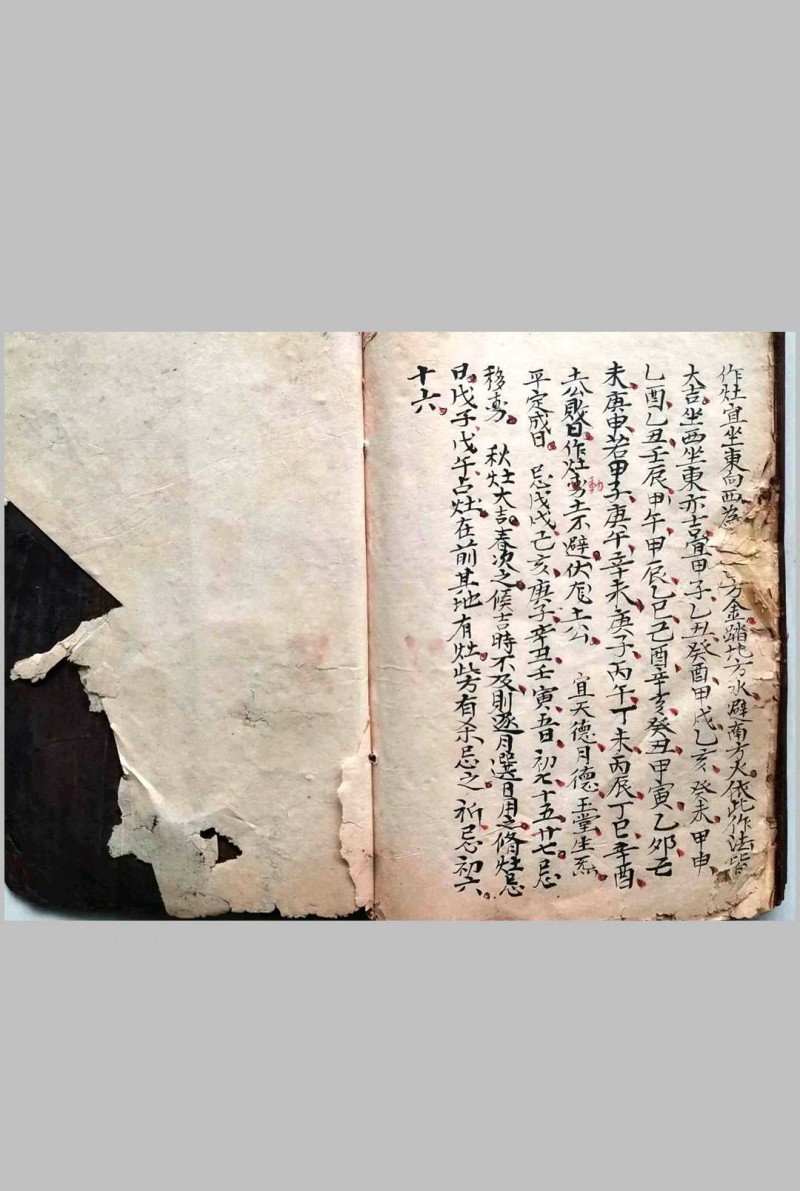 作灶宜坐東向西為方金踏地方水避南方火依此作法皆
大吉坐西坐東亦吉宜甲子乙丑癸酉甲戌乙亥癸未甲申
乙酉乙丑壬辰甲午甲辰乙巳己酉辛亥癸丑甲寅乙卯己
未庚申若甲子庚午辛未庚子丙午丁未丙辰丁巳辛酉
土公敗日作灶動土不避伏尨土公 宜天德月德玉堂生炁
平定成日 忌戊戌己亥庚子辛丑壬寅五日初七十五廿七忌
移動 秋灶大吉春次之候吉時不及則逐月選日用之脩灶忌
日戊子戊午占灶在前其地有灶此方有杀忌之祈忌初六
十六